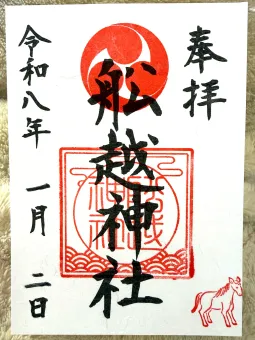 奉拝
船越神社
令和八年 一月 二日
船越
神社